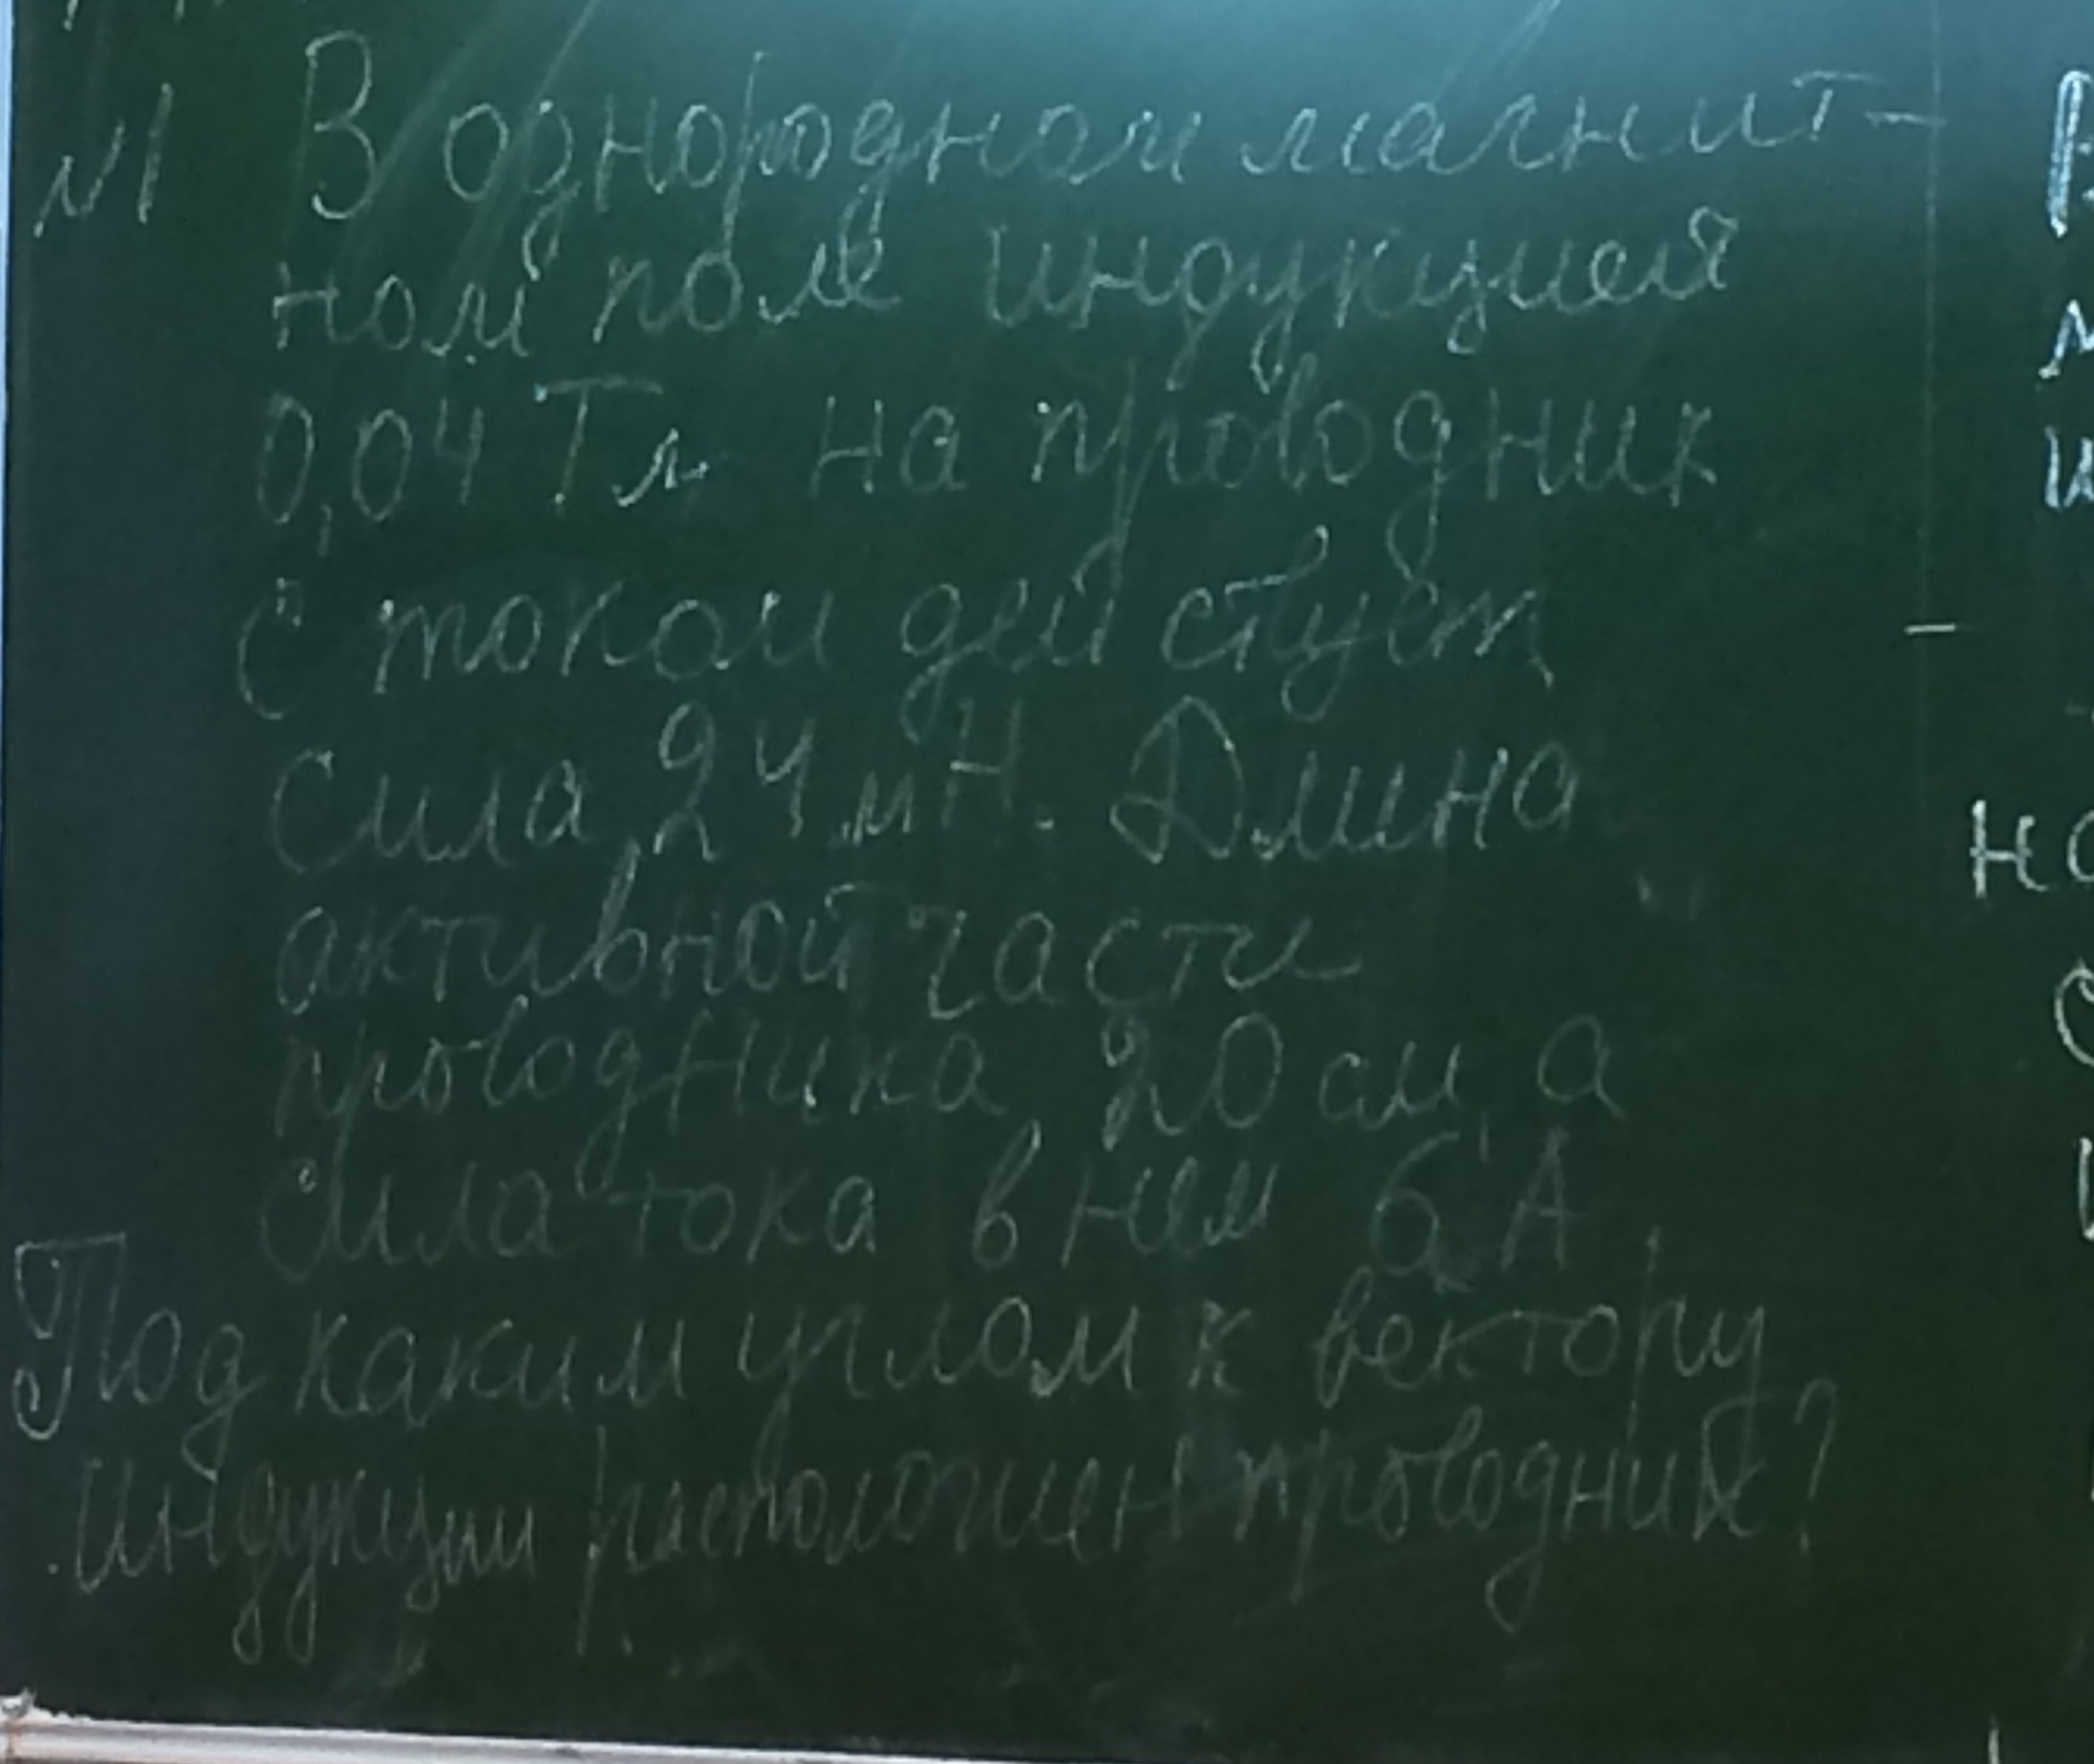 N1 В однородном магнит-
ном поле индукцией
0,04 Тл на проводник
с током действует
сила 24 мН. Длина
активной части
проводника 20 см, а
сила тока в нем 6 А.
Под каким углом к вектору
индукции расположен проводник?
но